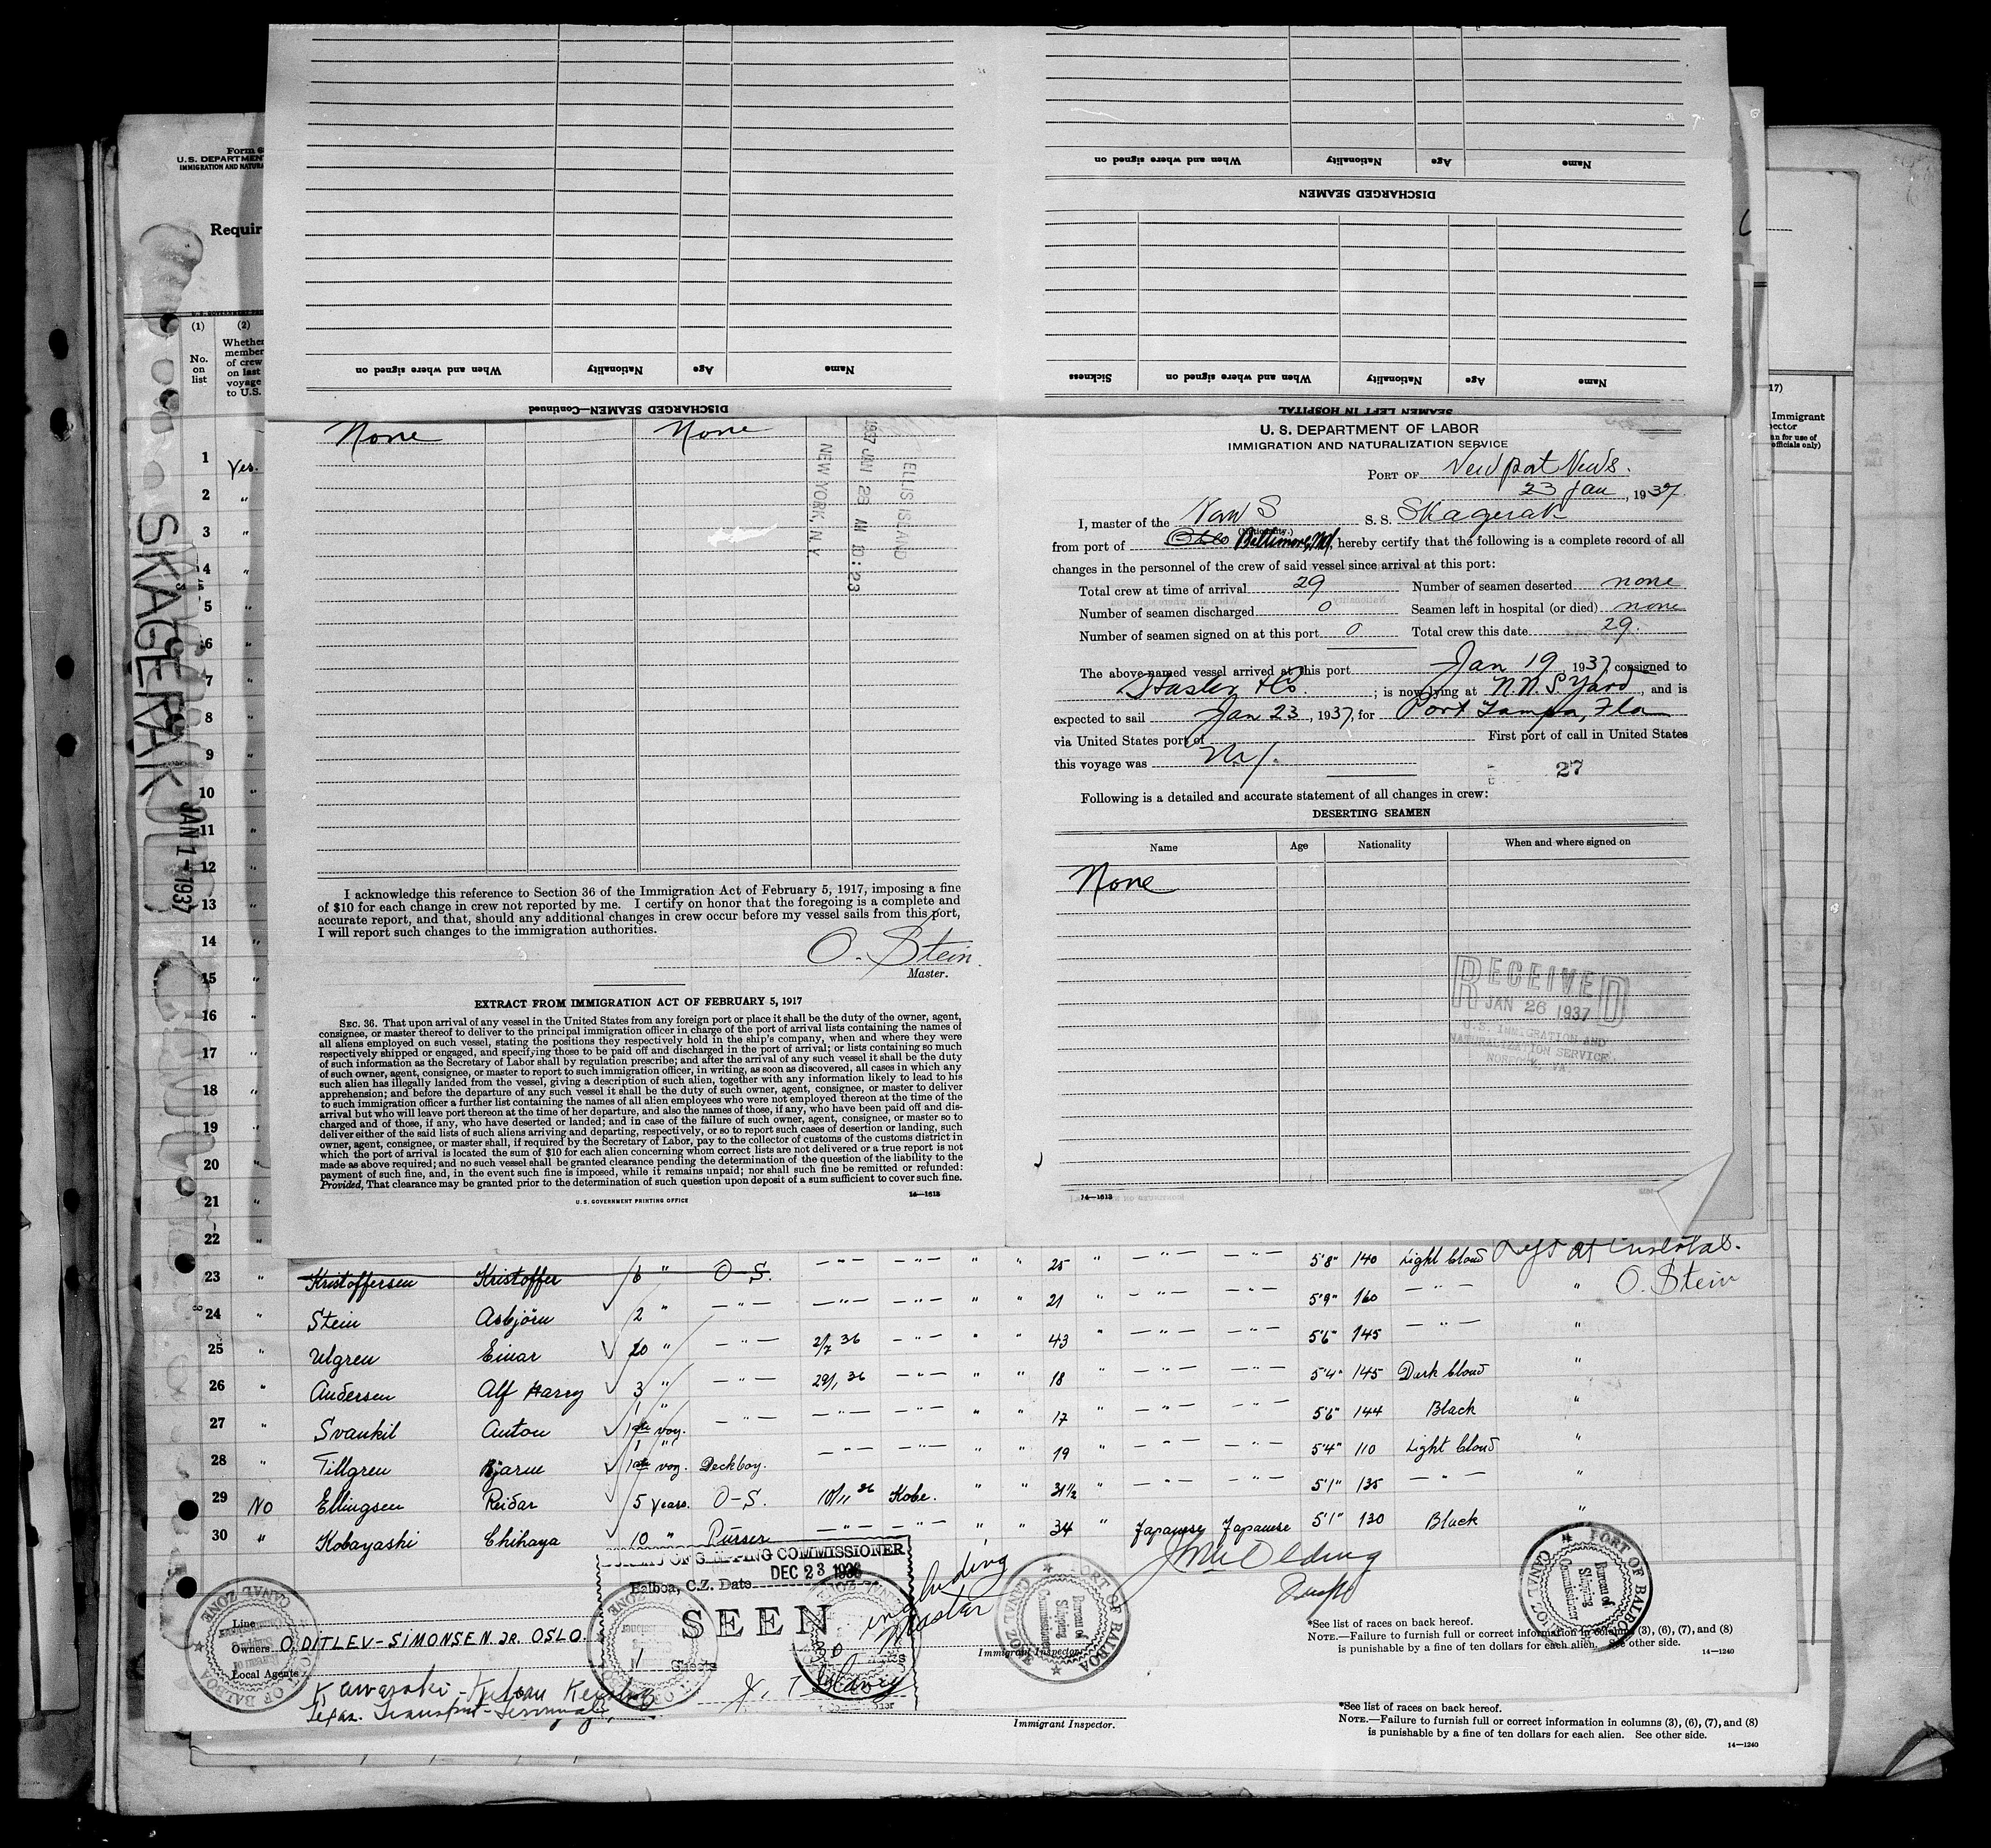 Form 6
U.S. DEPARTMENT
IMMIGRATION AND NATURA
Requir
(1) (2)
No. on list
Whether member of crew on last voyage to U.S.
SKAGERAK
JAN 1-1937
Name Age Nationality When and where signed on
DISCHARGED SEAMEN—Continued
Name Age Nationality When and where signed on
DISCHARGED SEAMEN
Name Age Nationality When and where signed on Sickness
SEAMEN LEFT IN HOSPITAL
None None
ELLIS ISLAND
1937 JAN 28 AM 10:23
NEW YORK, N.Y.
I acknowledge this reference to Section 36 of the Immigration Act of February 5, 1917, imposing a fine
of $10 for each change in crew not reported by me. I certify on honor that the foregoing is a complete and
accurate report, and that, should any additional changes in crew occur before my vessel sails from this port,
I will report such changes to the immigration authorities.
O. Stein
Master.
EXTRACT FROM IMMIGRATION ACT OF FEBRUARY 5, 1917
SEC. 36. That upon arrival of any vessel in the United States from any foreign port or place it shall be the duty of the owner, agent,
consignee, or master thereof to deliver to the principal immigration officer in charge of the port of arrival lists containing the names of
all aliens employed on such vessel, stating the positions they respectively hold in the ship's company, when and where they were
respectively shipped or engaged, and specifying those to be paid off and discharged in the port of arrival; or lists containing so much
of such information as the Secretary of Labor shall by regulation prescribe; and after the arrival of any such vessel it shall be the duty
of such owner, agent, consignee, or master to report to such immigration officer, in writing, as soon as discovered, all cases in which any
such alien has illegally landed from the vessel, giving a description of such alien, together with any information likely to lead to his
apprehension; and before the departure of any such vessel it shall be the duty of such owner, agent, consignee, or master to deliver
to such immigration officer a further list containing the names of all alien employees who were not employed thereon at the time of the
arrival but who will leave port thereon at the time of her departure, and also the names of those, if any, who have been paid off and dis-
charged and of those, if any, who have deserted or landed; and in case of the failure of such owner, agent, consignee, or master so to
deliver either of the said lists of such aliens arriving and departing, respectively, or so to report such cases of desertion or landing, such
owner, agent, consignee, or master shall, if required by the Secretary of Labor, pay to the collector of customs of the customs district in
which the port of arrival is located the sum of $10 for each alien concerning whom correct lists are not delivered or a true report is not
made as above required; and no such vessel shall be granted clearance pending the determination of the question of the liability to the
payment of such fine, and, in the event such fine is imposed, while it remains unpaid; nor shall such fine be remitted or refunded:
Provided, That clearance may be granted prior to the determination of such question upon deposit of a sum sufficient to cover such fine.
U.S. GOVERNMENT PRINTING OFFICE 14—1613
U. S. DEPARTMENT OF LABOR
IMMIGRATION AND NATURALIZATION SERVICE
PORT OF Newport News.
23 Jan, 1937.
I, master of the S. S. Skagerak
(Nationality)
from port of Oslo Baltimore, Md. hereby certify that the following is a complete record of all
changes in the personnel of the crew of said vessel since arrival at this port:
Total crew at time of arrival 29 Number of seamen deserted none
Number of seamen discharged 0 Seamen left in hospital (or died) none
Number of seamen signed on at this port 0 Total crew this date 29.
The above-named vessel arrived at this port Jan 19, 1937 consigned to
Hasler & Co. ; is now lying at N.N.S Yard, and is
expected to sail Jan 23, 1937, for Port Tampa, Fla
via United States port of First port of call in United States
this voyage was N.Y.
27
Following is a detailed and accurate statement of all changes in crew:
DESERTING SEAMEN
Name Age Nationality When and where signed on
None
RECEIVED
JAN 26 1937
U.S. IMMIGRATION AND
NATURALIZATION SERVICE
NORFOLK, VA.
14—1613
17)
Immigrant
1 Yes.
2 "
3 "
4 "
5 "
6 "
7 "
8 "
9 "
10 "
11 "
12 "
13 "
14 "
15 "
16 "
17 "
18 "
19 "
20 "
21 "
22 "
23 " Kristoffersen Kristoffer 6 " O-S. —"— —"— " " 25 " —"— —"— 5'8" 140 Light blond Left at Cristobal.
O. Stein
24 " Stein Asbjörn 2 " —"— —"— —"— " " 21 " —"— —"— 5'9" 160 —"— "
25 " Ulgren Einar 20 " —"— 2/7 36 —"— " " 43 " —"— —"— 5'6" 145 —"— "
26 " Andersen Alf Harry 3 " —"— 29/1 36 —"— " " 18 " —"— —"— 5'4" 145 Dark blond "
27 " Svankil Anton 1ste voy. —"— —"— —"— " " 17 " —"— —"— 5'6" 144 Black "
28 " Tillgren Bjarne 1ste voy. Deckboy. —"— —"— " " 19 " —"— —"— 5'4" 110 Light blond "
29 No Ellingsen Reidar 5 years. O-S. 10/11 36 Kobe. " " 31½ " —"— —"— 5'1" 135 —"— "
30 " Kobayashi Chihaya 10 " Purser —"— —"— " " 34 " Japanese Japanese 5'1" 130 Black "
BUREAU OF SHIPPING COMMISSIONER
Balboa, C.Z. Date DEC 23 1936
SEEN
30
Guests
including Master
PORT OF BALBOA
CANAL ZONE
Bureau of Shipping Commissioner
Line
Owners O. DITLEV-SIMONSEN JR. OSLO.
Local Agents
Kawasaki-Kisen
Texas Transport-Terminal
Immigrant Inspector.
*See list of races on back hereof.
NOTE.—Failure to furnish full or correct information in columns (3), (6), (7), and (8)
is punishable by a fine of ten dollars for each alien. See other side.
14—1240
Immigrant Inspector.
*See list of races on back hereof.
NOTE.—Failure to furnish full or correct information in columns (3), (6), (7), and (8)
is punishable by a fine of ten dollars for each alien. See other side.
14—1240